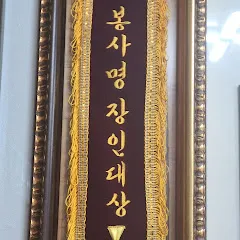 봉사명장인대상